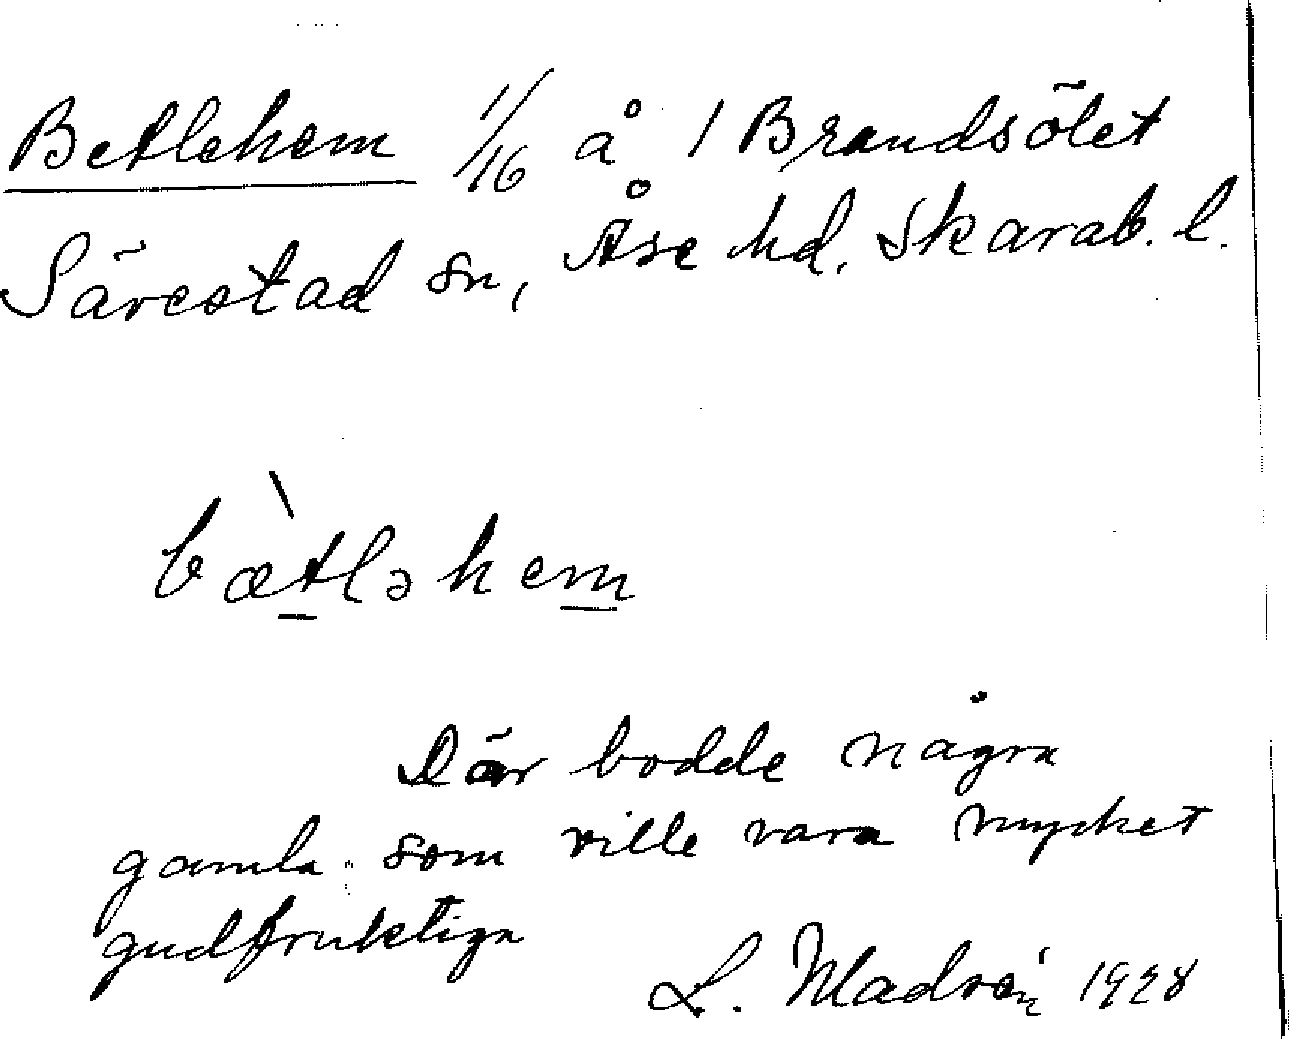 Betlehem 1/16 å 1 Brandsölet
Särestad sn, Åse hd, Skarab. l.
bæ̀tləhem
Där bodde några
gamla som ville vara mycket
gudfruktiga
L. Madvén 1928